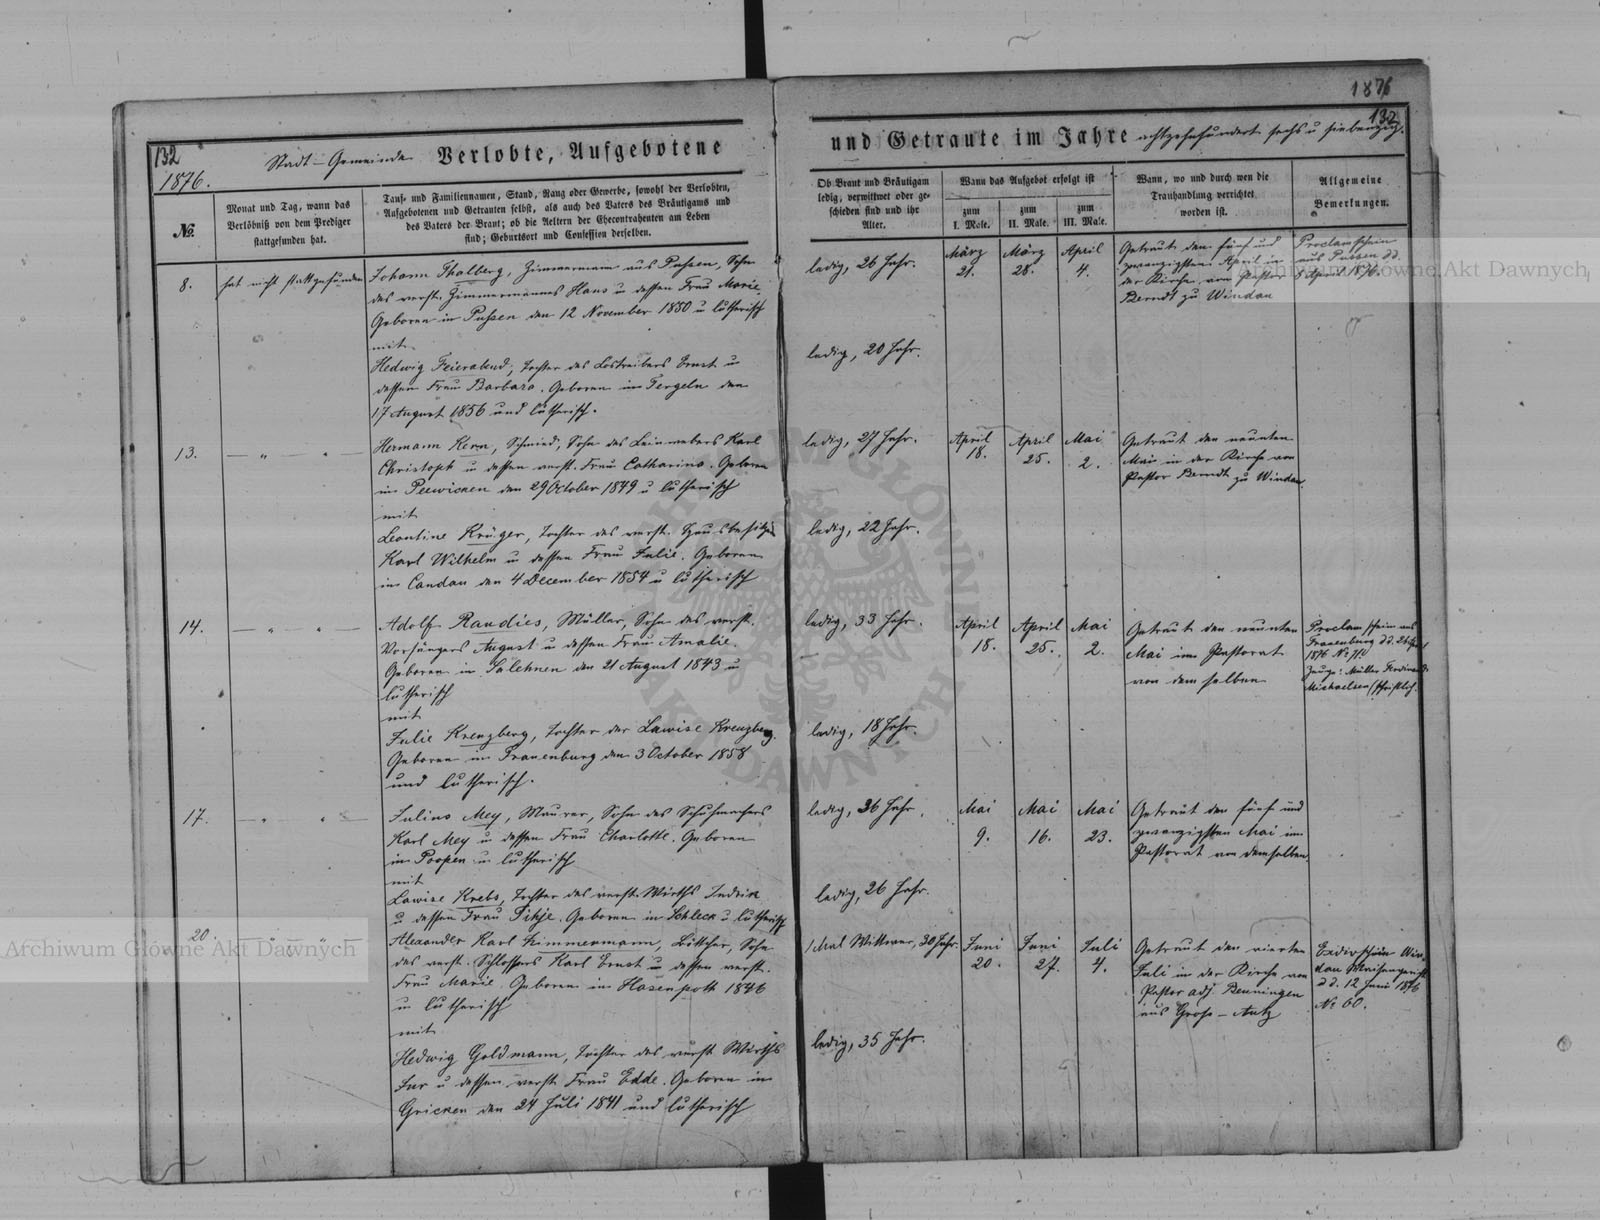 132
1876.
Stadt-Gemeinde Verlobte, Aufgebotene
№.
Monat und Tag, wann das
Verlöbniß von dem Prediger
stattgefunden hat.
Tauf- und Familiennamen, Stand, Rang oder Gewerbe, sowohl der Verlobten,
Aufgebotenen und Getrauten selbst, als auch des Vaters des Bräutigams und
des Vaters der Braut; ob die Aeltern der Ehecontrahenten am Leben
sind; Geburtsort und Confession derselben.
8. hat nicht stattgefunden
Johann Thalberg, Zimmermann aus Pussen, Sohn
des verst. Zimmermannes Hans u dessen Frau Marie.
Geboren in Pussen den 12 November 1850 u lutherisch
mit
Hedwig Feierabend, Tochter des Lostreibers Ernst u
dessen Frau Barbara. Geboren in Tergeln den
17 August 1856 und lutherisch.
13. — " " —
Hermann Kern, Schmied, Sohn des Leinwebers Karl
Christoph u dessen verst. Frau Catharina. Geboren
in Peewicken den 29 October 1849 u lutherisch
mit
Leontine Krüger, Tochter des verst. Hausbesitzers
Karl Wilhelm u dessen Frau Julie. Geboren
in Candau den 4 December 1854 u lutherisch
14. — " " —
Adolf Raudies, Müller, Sohn des verst.
Vorsängers August u dessen Frau Amalie.
Geboren in Salehnen den 21 August 1843 u
lutherisch
mit
Julie Kreuzberg, Tochter der Lawise Kreuzberg.
Geboren in Frauenburg den 3 October 1858
und lutherisch.
17. — " " —
Julius Mey, Maurer, Sohn des Schuhmachers
Karl Mey u dessen Frau Charlotte. Geboren
in Poopen u lutherisch
mit
Lawise Krebs, Tochter des verst. Wirths Indrik
u dessen Frau Pihje. Geboren in Schleck u lutherisch
20. — " " —
Alexander Karl Zimmermann, Böttcher, Sohn
des verst. Schlossers Karl Ernst u dessen verst.
Frau Marie. Geboren in Hasenpoth 1846
u lutherisch
mit
Hedwig Goldmann, Tochter des verst. Wirths
Jur u dessen verst. Frau Edde. Geboren in
Gricken den 24 Juli 1841 und lutherisch
1876
132
und Getraute im Jahre achtzehnhundert sechs u siebenzig.
Ob Braut und Bräutigam
ledig, verwittwet oder ge-
schieden sind und ihr
Alter.
Wann das Aufgebot erfolgt ist
zum
I. Male.
zum
II. Male.
zum
III. Male.
Wann, wo und durch wen die
Trauhandlung verrichtet
worden ist.
Allgemeine
Bemerkungen.
ledig, 26 Jahr.
März
21.
März
28.
April
4.
Getraut den fünf und
zwanzigsten April in
der Kirche von Pastor
Berndt zu Windau
Proclamschein
aus Pussen dd.
April 1876.
ledig, 20 Jahr.
ledig, 27 Jahr.
April
18.
April
25.
Mai
2.
Getraut den neunten
Mai in der Kirche von
Pastor Berndt zu Windau.
ledig, 22 Jahr.
ledig, 33 Jahr.
April
18.
April
25.
Mai
2.
Getraut den neunten
Mai im Pastorat
von demselben
Proclamschein aus
Frauenburg dd.
1876 №
Zeuge: Müller Ferdinand
Michaelsen schriftlich.
ledig, 18 Jahr.
ledig, 36 Jahr.
Mai
9.
Mai
16.
Mai
23.
Getraut den fünf und
zwanzigsten Mai im
Pastorat von demselben
ledig, 26 Jahr.
1 Mal Wittwer, 30 Jahr.
Juni
20.
Juni
27.
Juli
4.
Getraut den vierten
Juli in der Kirche von
Pastor adj. Benningen
aus Gross-Autz
Exdivschein Win-
dau Waisengericht
dd. 12 Juni 1876
№ 60.
ledig, 35 Jahr.
Archiwum Główne Akt Dawnych
Archiwum Główne Akt Dawnych
ARCHIWUM GŁÓWNE
AKT DAWNYCH